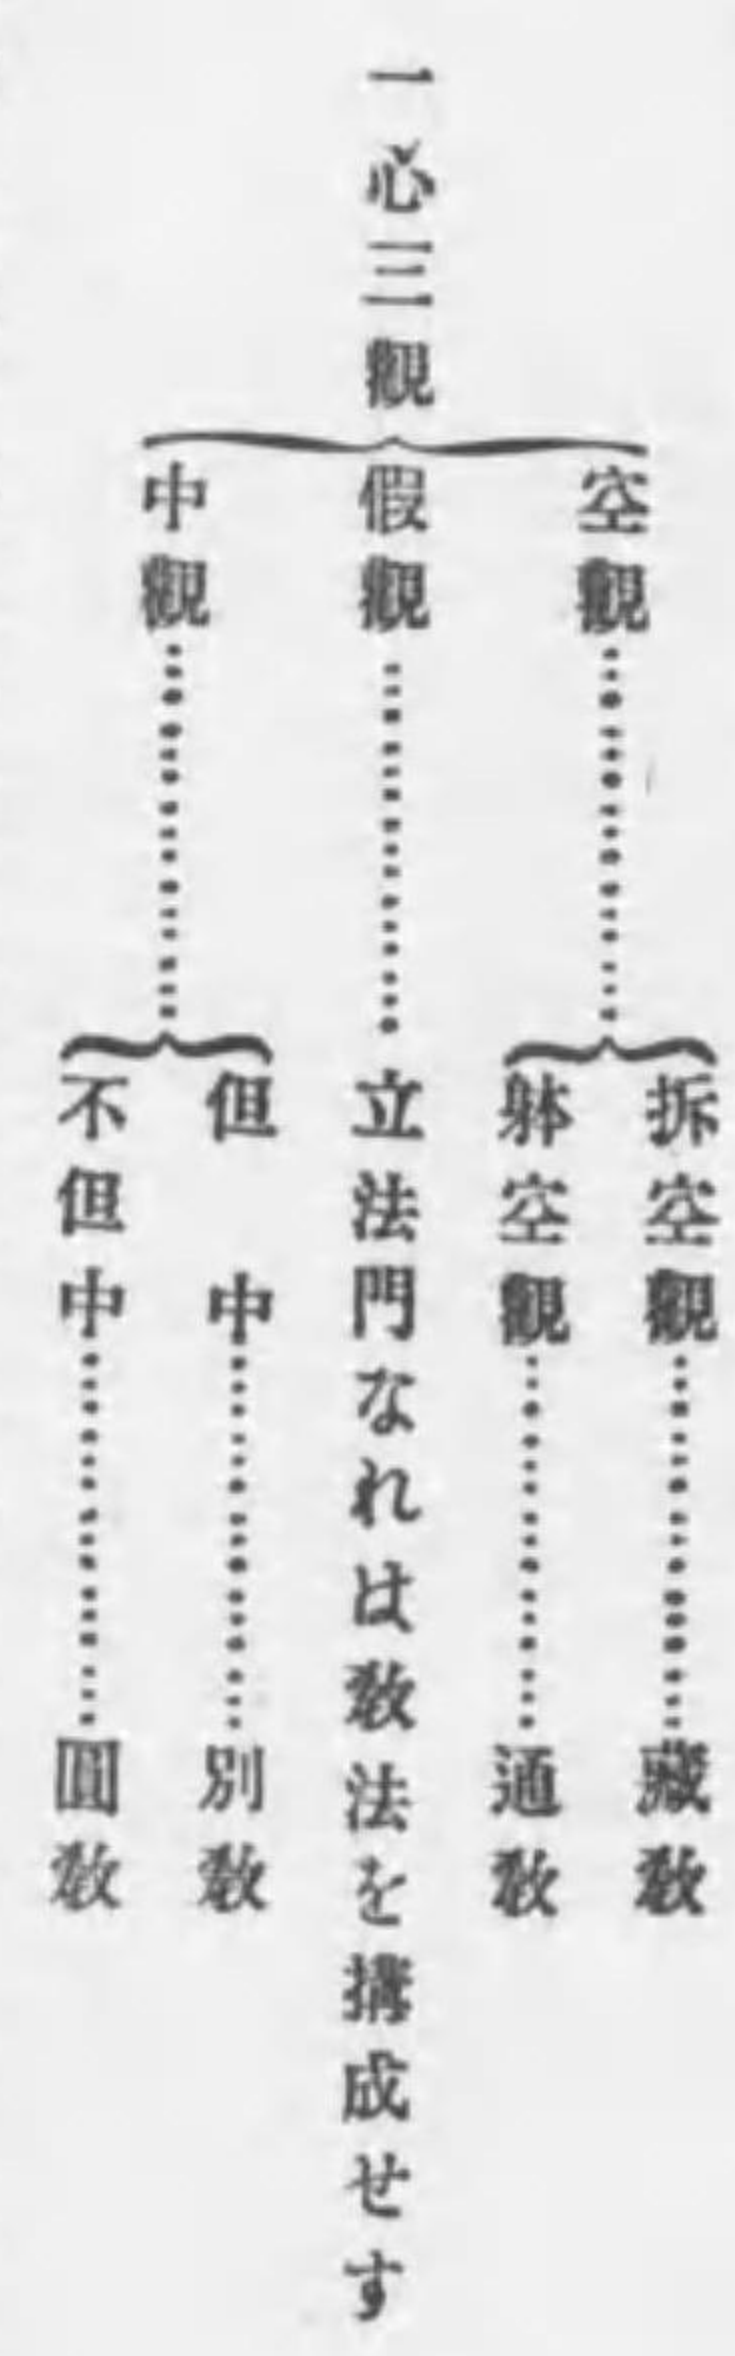 一心三觀
空觀
拆空觀
藏敎
躰空觀
通敎
假觀
立法門なれは敎法を搆成せす
中觀
但中
別敎
不但中
圓敎